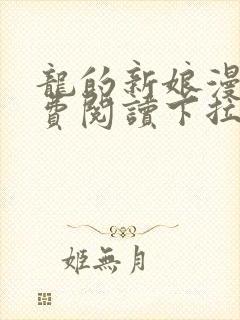 龍的新娘漫
費閱讀下拉
姬無月